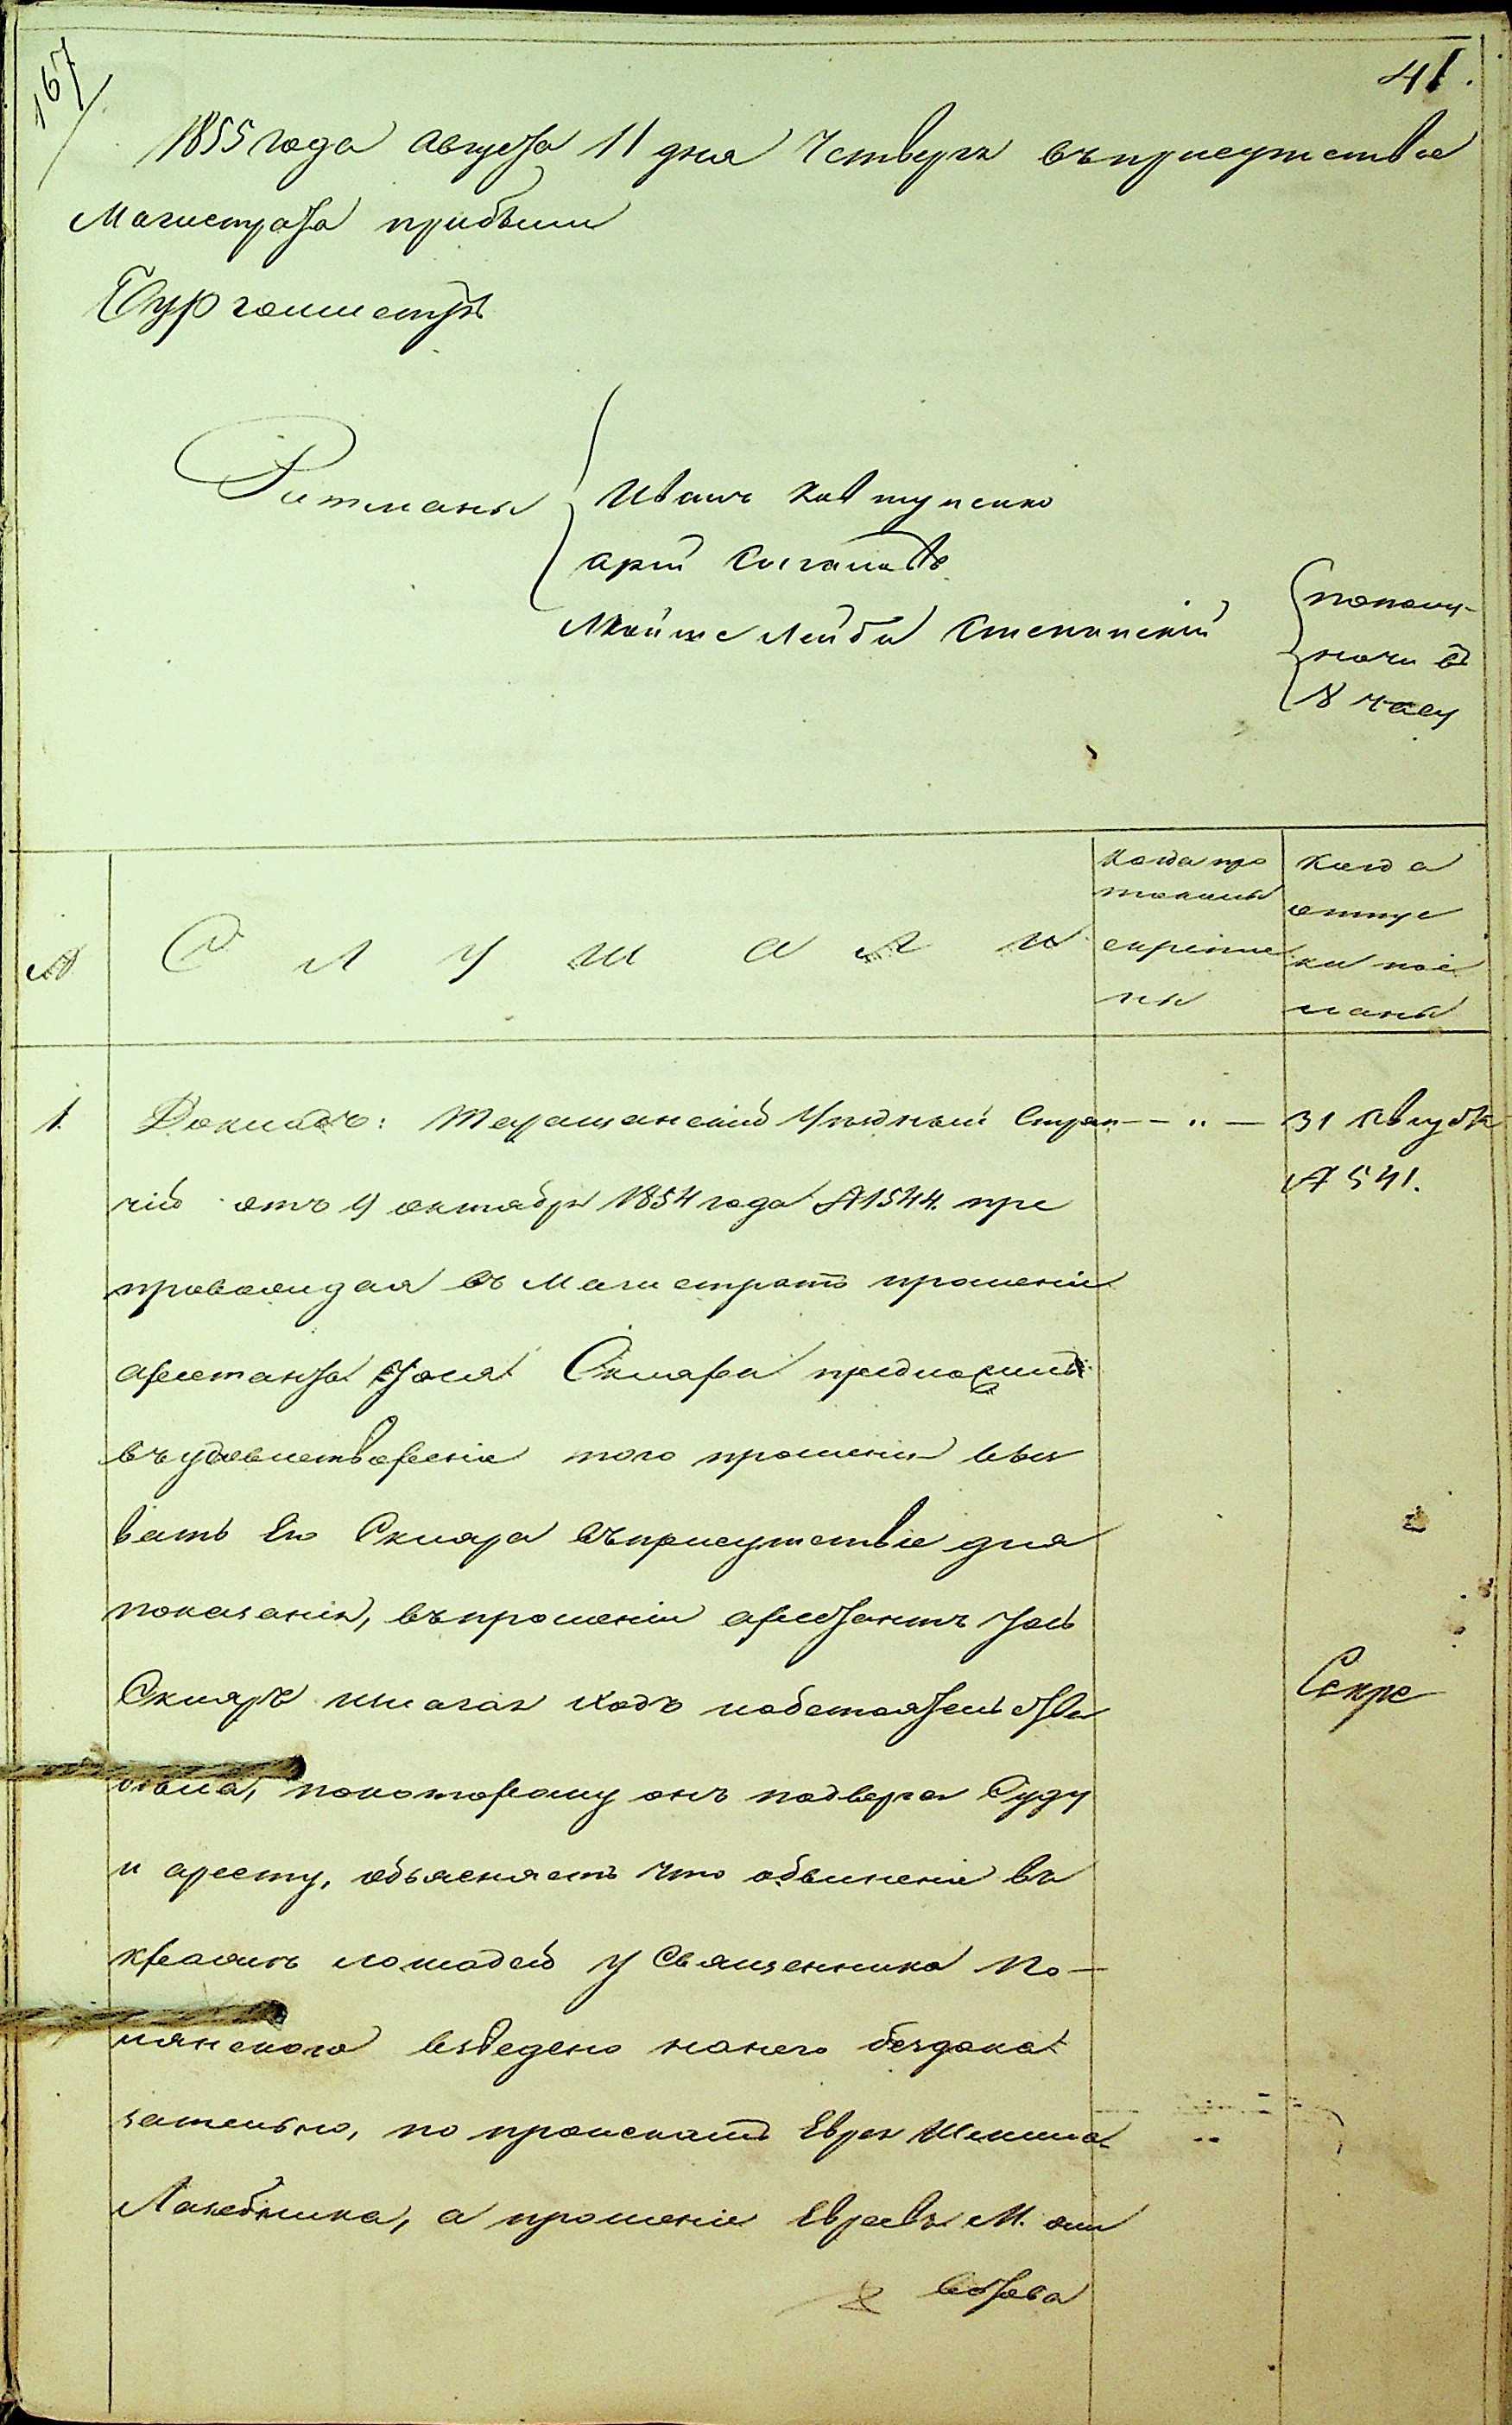 167
41.
1855 года августа 11 дня Четверга въ присутствіе
Магистрата прибыли
Бургомистръ
Ратманы
Иванъ Ковтуненко
Арій
Мойше Лейба
пополу-
ночи въ
8 часу
№
С л у ш а л и
Когда про
токолы
скрѣпле
ны
Когда
отпус
ки пос
ланы
1.
Докладъ: Таращанскій Уѣздный Стряп-
чій отъ 9 октября 1854 года № 1544. пре
провождая въ Магистратъ прошеніе
арестанта Іося Скляра предложилъ
въ удовлетвореніе того прошенія вы
вать Его Скляра въ присутствіе для
показанія, въ прошеніи арестантъ Іось
Скляръ излагая ходъ и обстоятельства
дѣла, по которому онъ подвергся Суду
и аресту, объясняетъ что обвиненіе въ
кражѣ лошадей у Священника По-
лянскаго взведено на него бездока
зательно, по проискамъ Еврея
Лазебника, а прошеніе Евреевъ М.
31 Августа
№ 541.
Секре